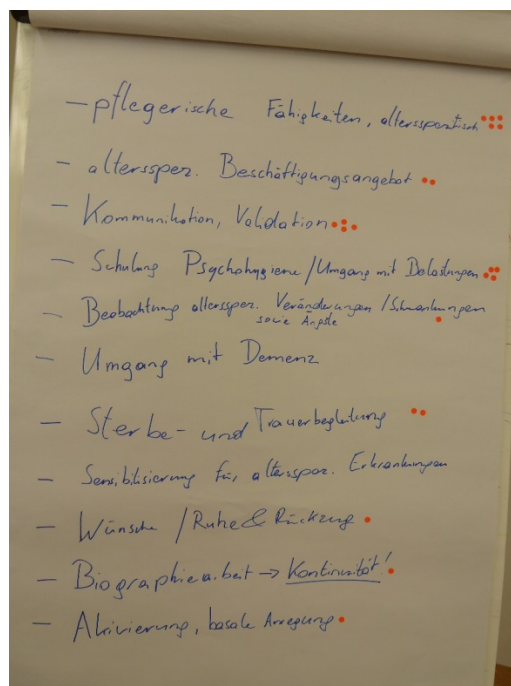 - pflegerische Fähigkeiten, altersspezifisch
- altersspez. Beschäftigungsangebot
- Kommunikation, Validation
- Schulung Psychohygiene / Umgang mit Belastungen
- Beobachtung altersspez. Veränderungen / Schwankungen
sowie Ängste
- Umgang mit Demenz
- Sterbe- und Trauerbegleitung
- Sensibilisierung für altersspez. Erkrankungen
- Wünsche / Ruhe & Rückzug
- Biographiearbeit → Kontinuität!
- Aktivierung, basale Anregung